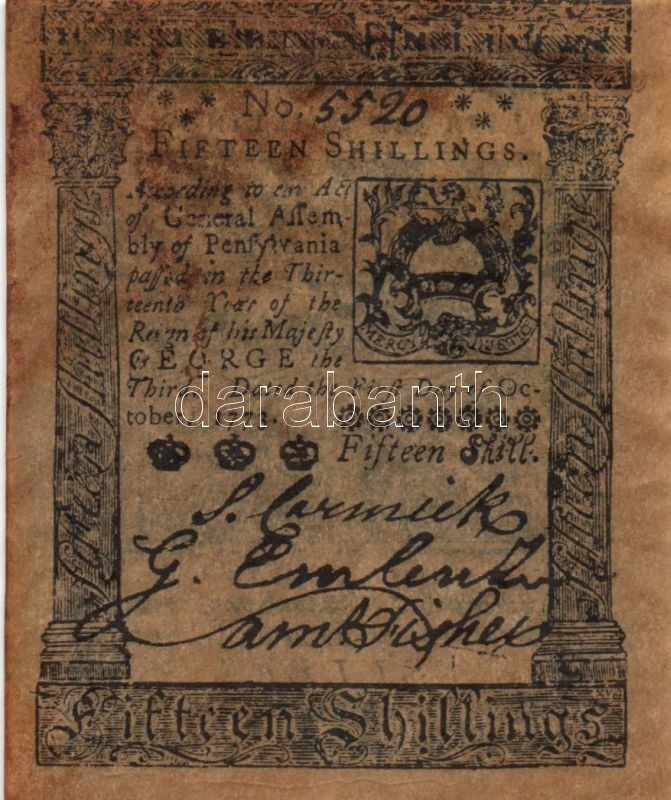 No. 5520
FIFTEEN SHILLINGS.
According to an Act
of General Assem-
bly of Pensylvania
passed in the Thir-
teenth Year of the
Reign of his Majesty
GEORGE the
Third. Dated the First Day of Oc-
tober,
Fifteen Shill.
MERCY JUSTICE
Fifteen Shillings
Fifteen Shillings
S. Cormick
G. Emlen
Saml Fisher
Fifteen Shillings
darabanth